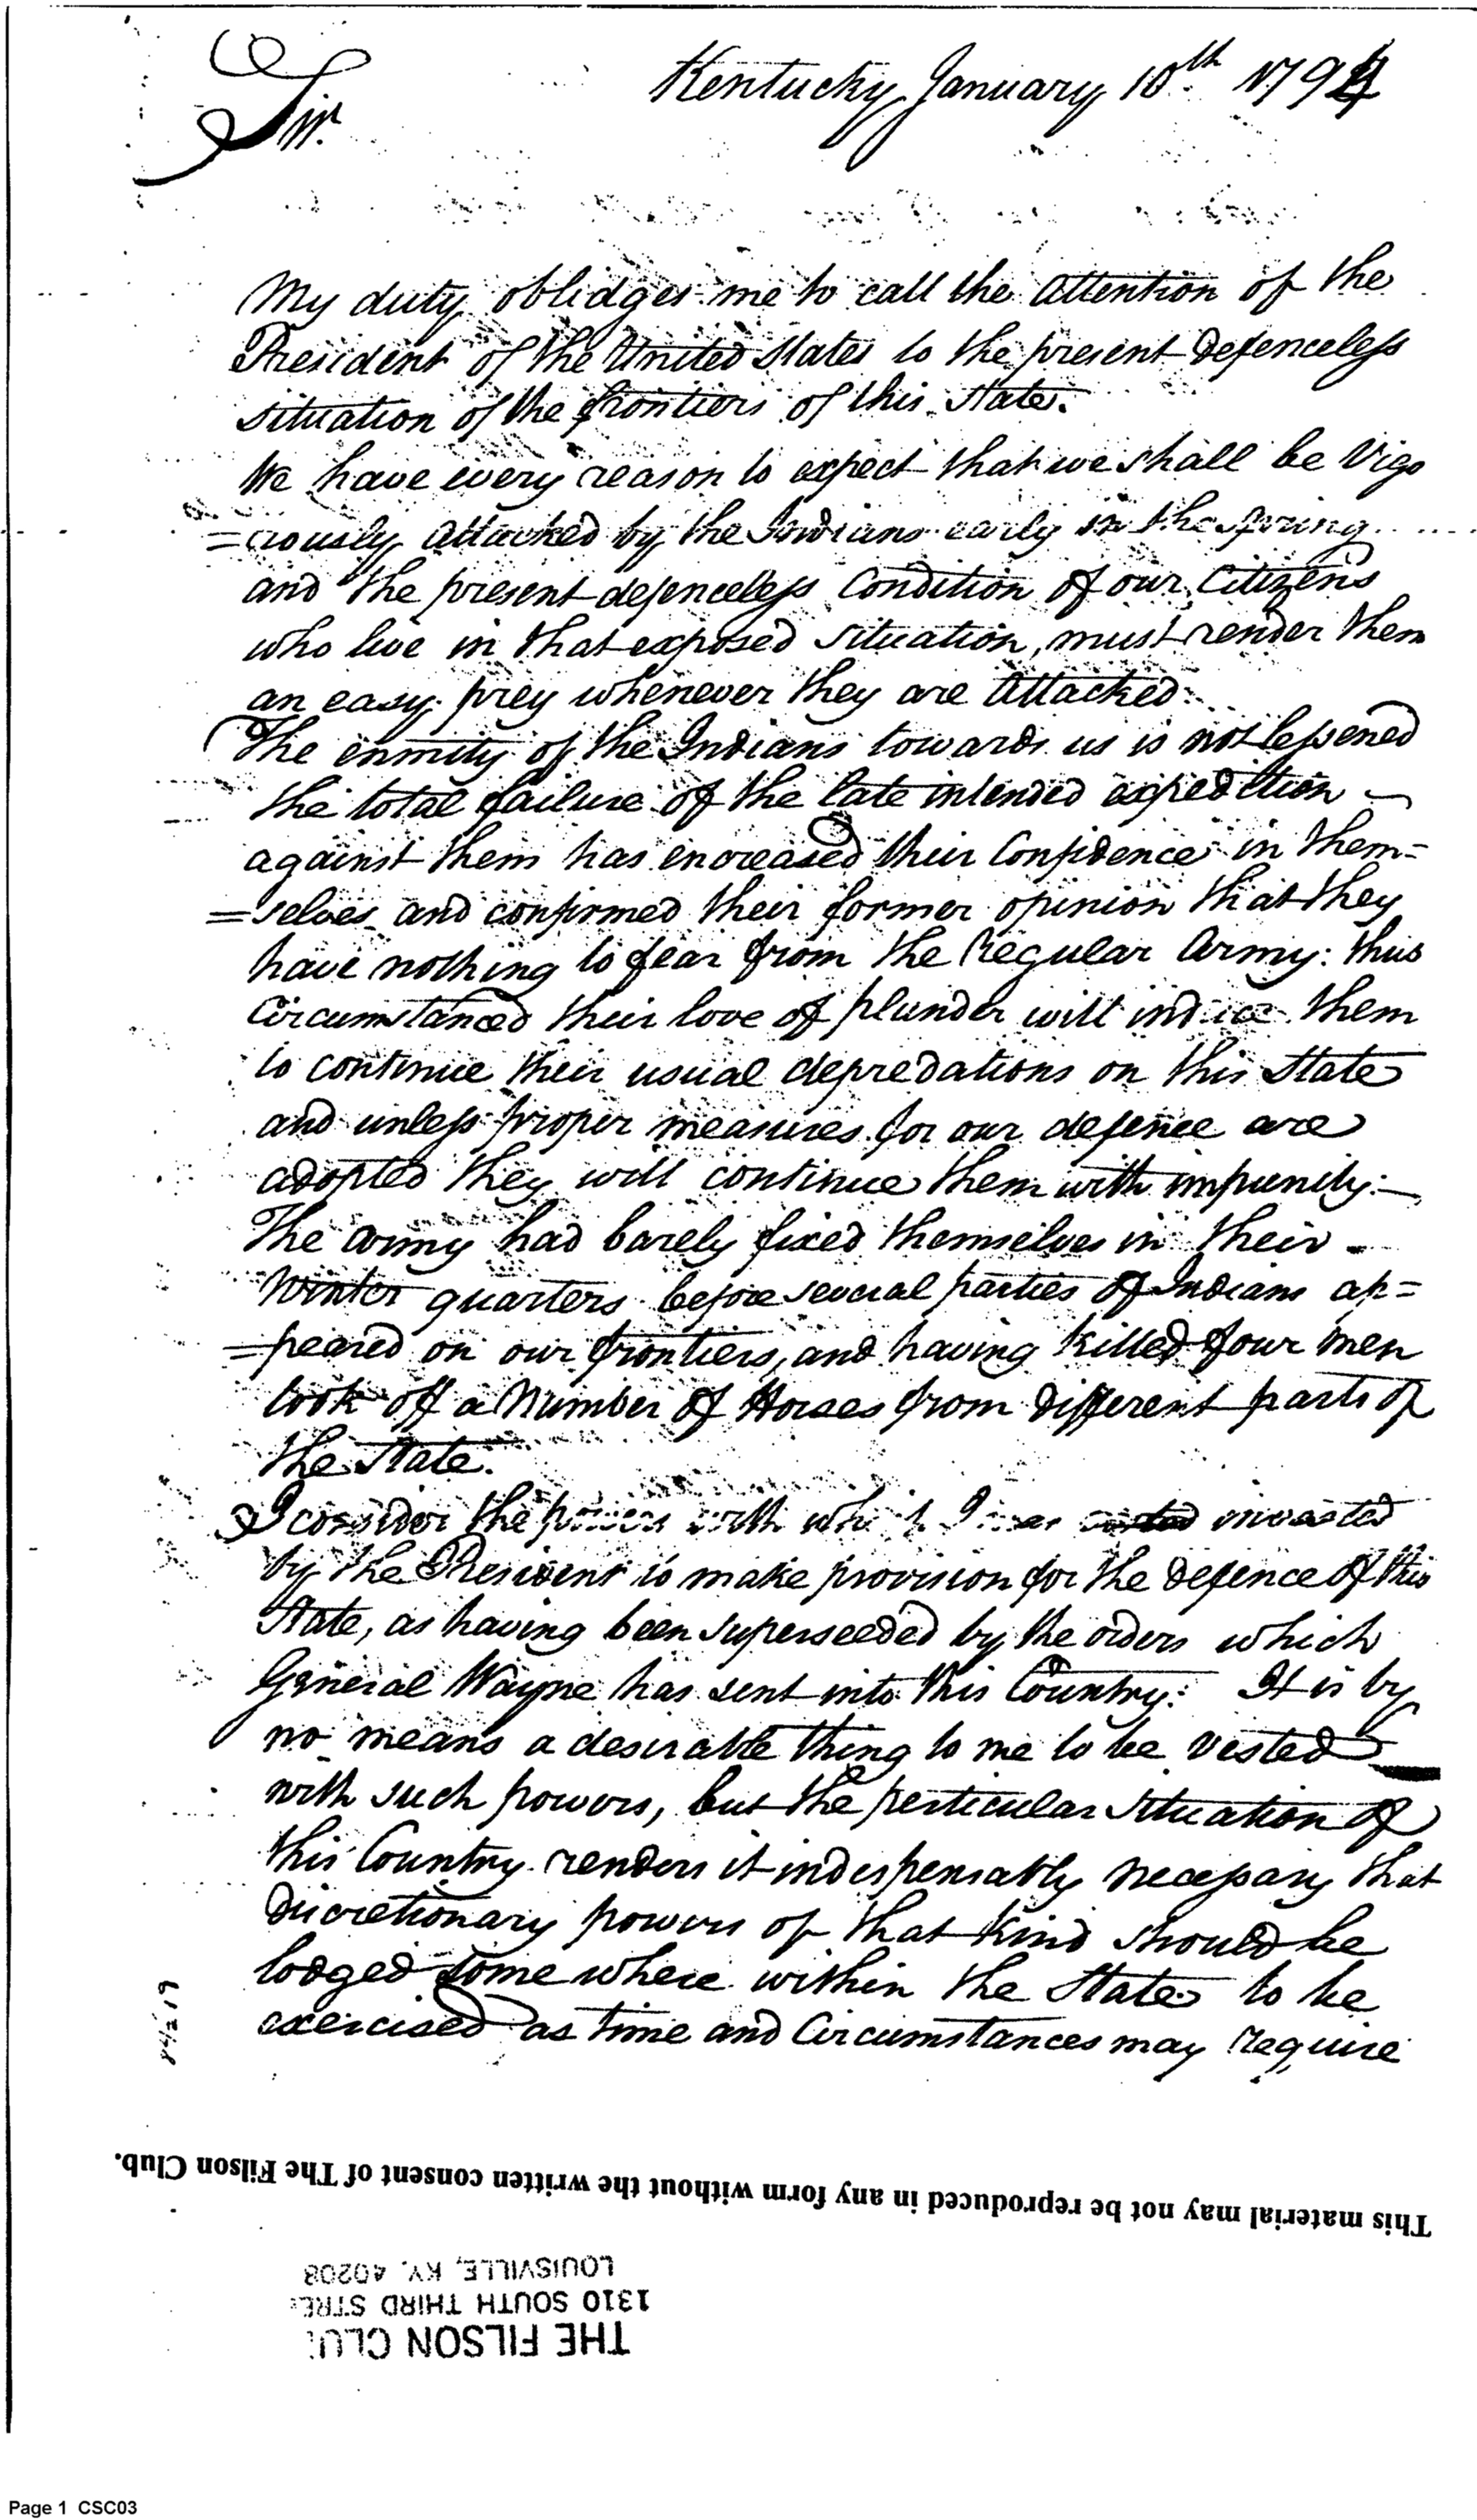 Kentucky January 10th 1794
Sir.
My duty oblidges me to call the Attention of the
President of the United States to the present Defenceless
situation of the frontiers of this State.
We have every reason to expect that we shall be Vigo
=rously attacked by the Indians early in the spring
and the present defenceless Condition of our Citizens
who live in that exposed situation, must render them
an easy prey whenever they are Attacked.
The enmity of the Indians towards us is not lessened
the total failure of the late intended expedition
against them has encreased their Confidence in them=
=selves and confirmed their former opinion that they
have nothing to fear from the Regular Army: thus
Circumstanced their love of plunder will induce them
to continue their usual depredations on this State
and unless proper measures for our defence are
adopted they will continue them with impunity:—
The army had barely fixed themselves in their
Winter quarters before several parties of Indians ap=
=peared on our frontiers, and having killed four men
took off a Number of Horses from Different parts of
the State.
I consider the powers with which I was invested
by the President to make provision for the Defence of this
State, as having been superseeded by the orders which
General Wayne has sent into this Country: It is by
no means a desirable thing to me to be vested
with such powers, but the perticular situation of
this Country renders it indespensably necessary that
Discretionary powers of that Kind should be
lodged some where within the State to be
exercised as time and Circumstances may require
This material may not be reproduced in any form without the written consent of The Filson Club.
THE FILSON CLU
1310 SOUTH THIRD STRE
LOUISVILLE, KY. 40208
Page 1 CSC03